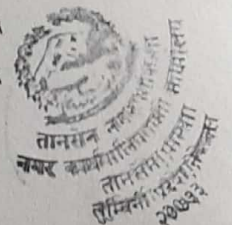 तानसेन नगरपालिका
नगर कार्यपालिकाको कार्यालय
तानसेन पाल्पा
लुम्बिनी प्रदेश